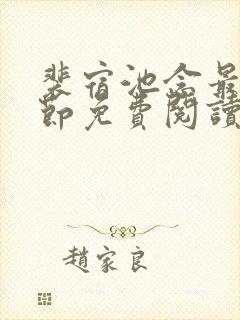 裴宿池念最
節免費閱讀
趙家良